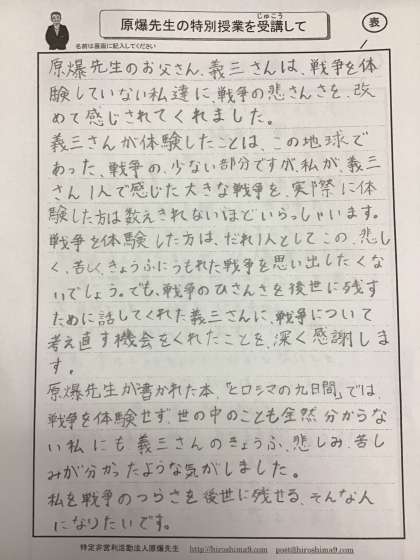 原爆先生の特別授業を受講して
じゅこう
表
名前は裏面に記入してください
原爆先生のお父さん、義三さんは、戦争を体
験していない私達に、戦争の悲さんさを、改
めて感じされてくれました。
義三さんが体験したことは、この地球で
あった、戦争の、少ない部分ですが、私が、義三
さん1人で感じた大きな戦争を、実際に体
験した方は数えきれないほどいらっしゃいます。
戦争を体験した方は、だれ1人としてこの、悲し
く、苦しく、きょうふにうもれた戦争を思い出したくな
いでしょう。でも、戦争のひさんさを後世に残す
ために話してくれた義三さんに、戦争について
考え直す機会をくれたことを、深く感謝しま
す。
原爆先生が書かれた本、『ヒロシマの九日間』では、
戦争を体験せず、世の中のことも全然分からな
い私にも義三さんのきょうふ、悲しみ、苦し
みが分かったような気がしました。
私を戦争のつらさを後世に残せる、そんな人
になりたいです。
特定非営利活動法人原爆先生 http://hiroshima9.com post@hiroshima9.com